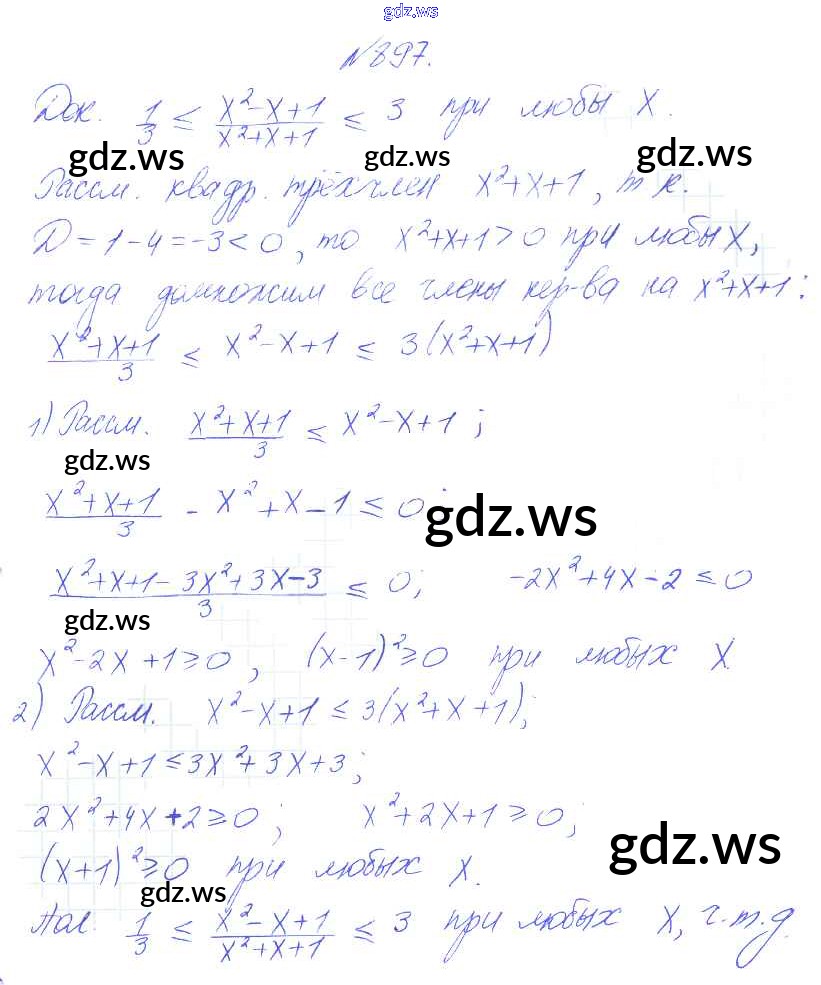 gdz.ws
№897.
Док. 1/3 ≤ (x²-x+1)/(x²+x+1) ≤ 3 при любы x.
gdz.ws gdz.ws gdz.ws
Рассм. квадр. трёхчлен x²+x+1, т к.
D=1-4=-3<0, то x²+x+1>0 при любы x,
тогда домножим все члены нер-ва на x²+x+1:
(x²+x+1)/3 ≤ x²-x+1 ≤ 3(x²+x+1)
1) Рассм. (x²+x+1)/3 ≤ x²-x+1;
gdz.ws
(x²+x+1)/3 - x²+x-1≤0;
gdz.ws
(x²+x+1-3x²+3x-3)/3 ≤ 0; -2x²+4x-2≤0
gdz.ws
x²-2x+1≥0, (x-1)²≥0 при любых x
2) Рассм. x²-x+1≤3(x²+x+1);
x²-x+1≤3x²+3x+3;
2x²+4x+2≥0; x²+2x+1≥0;
gdz.ws
(x+1)²≥0 при любых x.
gdz.ws
1/3 ≤ (x²-x+1)/(x²+x+1) ≤ 3 при любых x, ч.т.д.